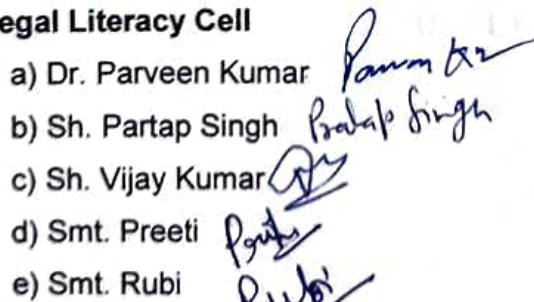 egal Literacy Cell
a) Dr. Parveen Kumar
b) Sh. Partap Singh Pratap Singh
c) Sh. Vijay Kumar
d) Smt. Preeti Preeti
e) Smt. Rubi Rubi